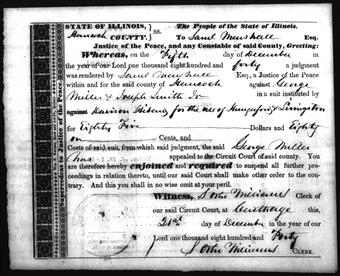 STATE OF ILLINOIS, } ss. The People of the State of Illinois.
Hancock COUNTY. To Saml Marshall Esq.
Justice of the Peace, and any Constable of said County, Greeting:
Whereas, on the Fifth day of December in
the year of our Lord one thousand eight hundred and forty a judgment
was rendered by Saml Marshall Esq., a Justice of the Peace
within and for the said county of Hancock against George
Miller & Joseph Smith Sr in a suit instituted by
against for the use of & Livingston
for Eighty Five Dollars and Eighty
Cents, and
Costs of said suit, from which judgment, the said George Miller
has appealed to the Circuit Court of said county. You
are therefore hereby enjoined and required to suspend all further pro-
ceedings in relation thereto, until our said Court shall make other order to the con-
trary. And this you shall in no wise omit at your peril.
Witness, Clerk of
our said Circuit Court, at Carthage this,
21st day of December in the year of our
Lord one thousand eight hundred and Forty
CLERK.